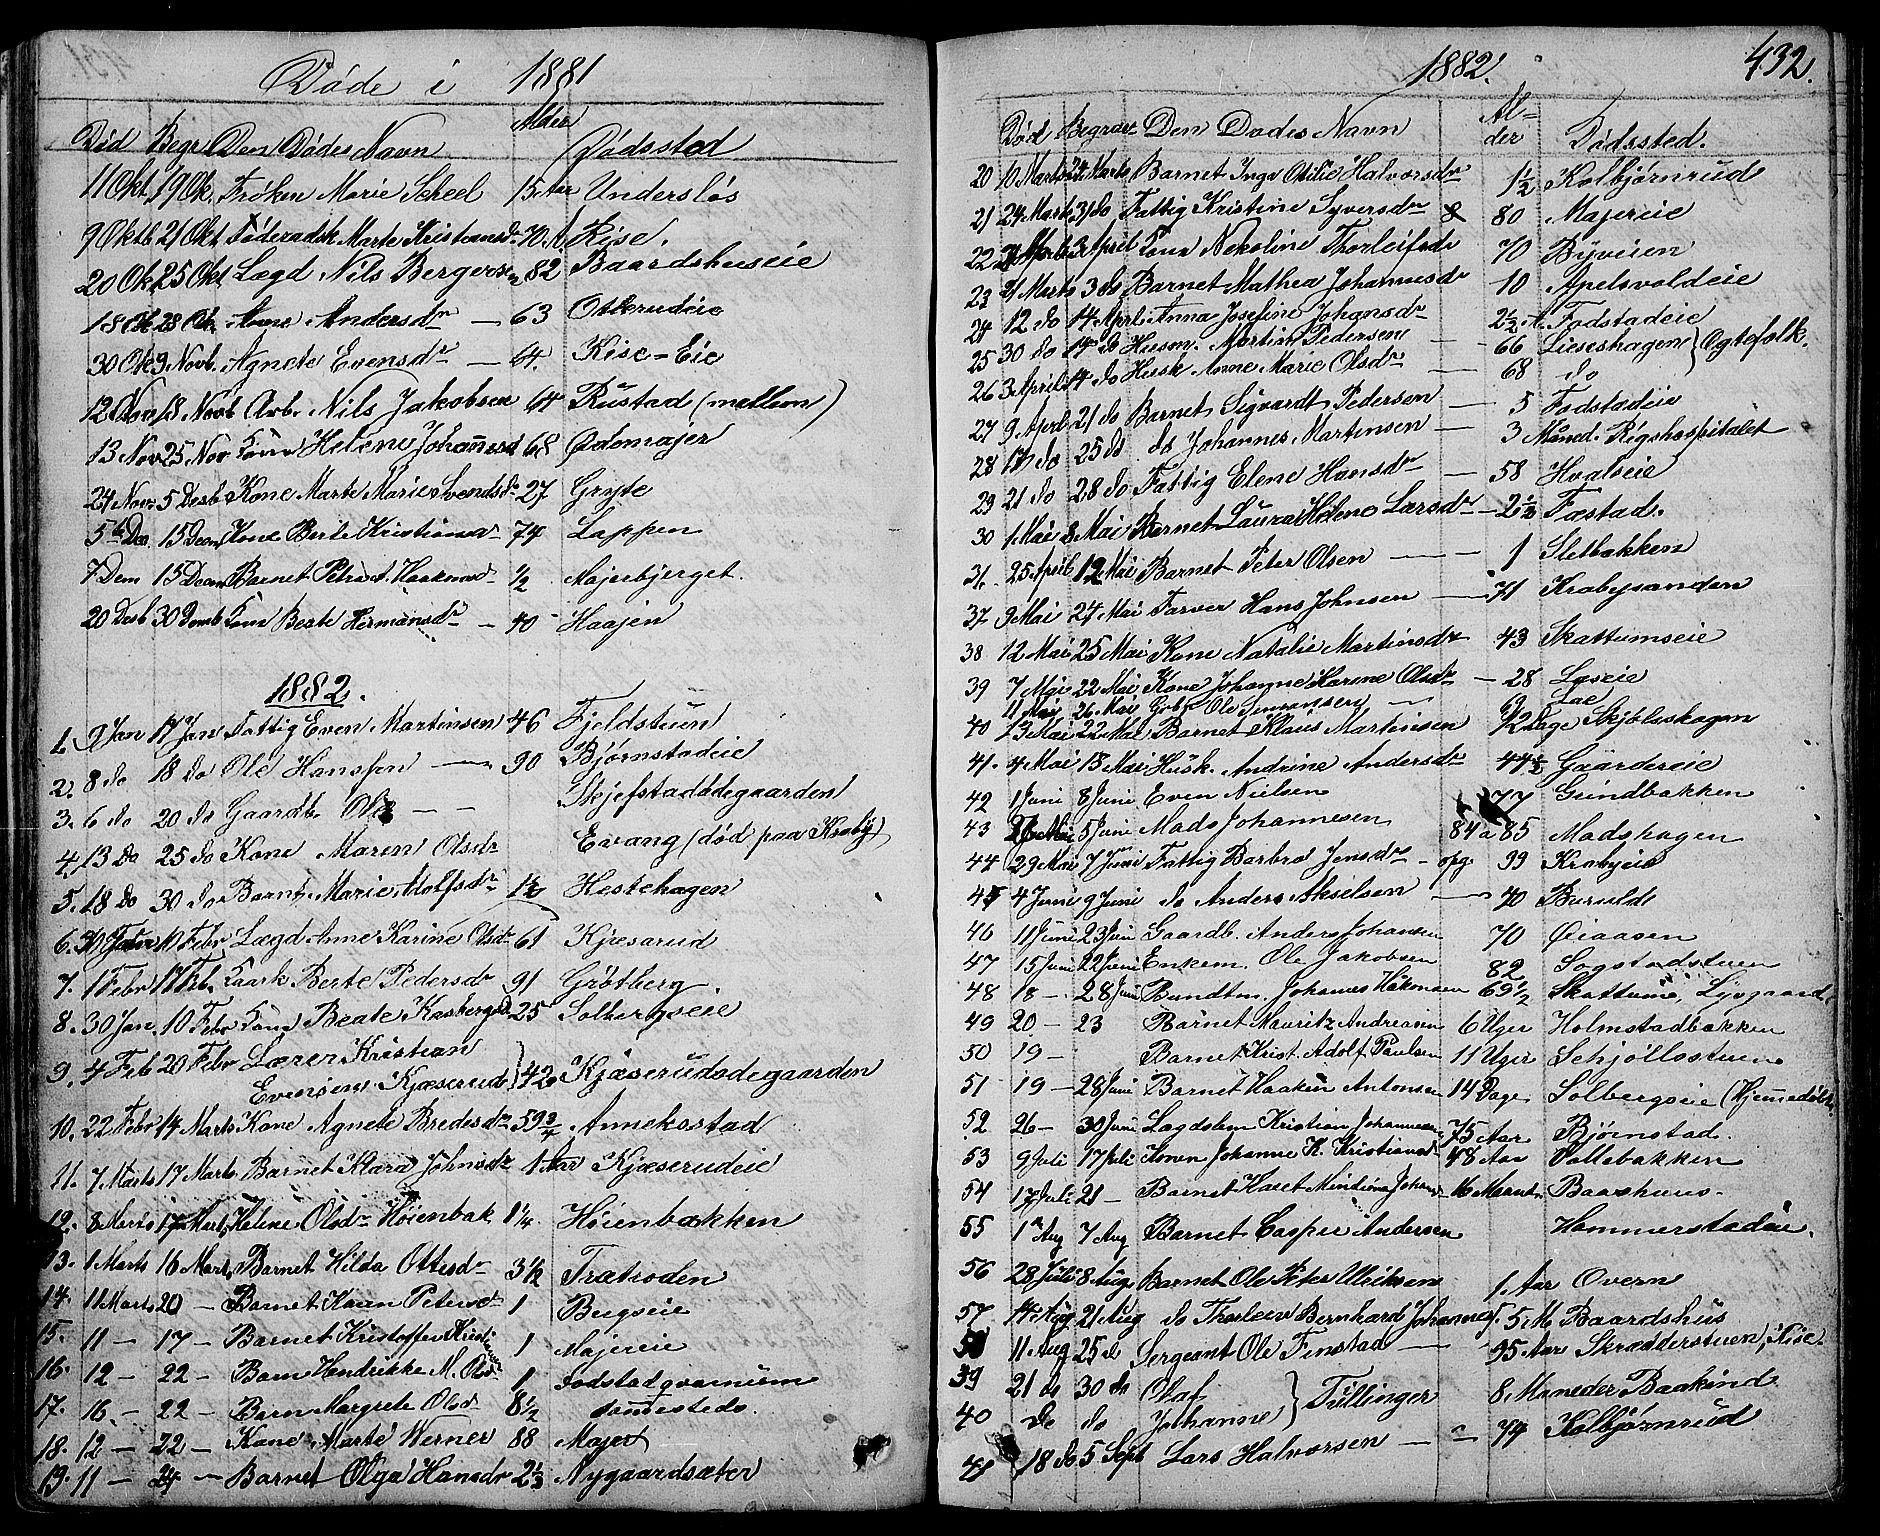 Døde i 1881
Død Begr Den Dødes Navn Alder Dødssted
11 Okt 19 Ok. Frøken Marie Scheel 15 Aar Undersløs
9 Oktb 21 Okt Føderadsk Marte Kristiansdr 70 A Kise.
20 Okt 25 Okt Lægd Nils Bergersen 82 Baardshuseie
18 Ok 28 Ok Anne Andersdr — 63 Otterudeie
30 Okt 9 Novb. Agnete Evensdr — 64. Kise-Eie
12 Nov 18 Novb Arb. Nils Jakobsen 64 Rustad (mellem)
13 Nov 25 Nov Kone Helene Johannesd 68 Ødemajer
24 Nov. 5 Desb Kone Marte Marie Svendsdr 27 Gryte
5te Dec. 15 Decm Kone Berte Kristiansdr 74 Lappen
7 Dem 15 Decm Barnet Petra Haakensd ½ Majerbjerget.
20 Desb 30 Demb Kone Beate Hermansdr — 40 — Haajen
1882.
1. 9 Jan 17 Jan Fattig Even Martinsen 46 Fjeldstuen
2. 8 do 18 do Ole Hanssen — 90 Bjørnstadeie
3. 6 do 20 do Gaardb. Ole — — Skjefstadødegaarden
4. 13 Do 25 do Kone Maren Olsdr Evang (død paa Kraby)
5. 18 Do 30 do Barnt. Marie Adolfsdr 1½ Hestehagen
6. 30 Janr 10 Febr Lægd Anne Karine Olsdr 61 Kjæsarud
7. 1 Febr 17 Feb. Kaark Berte Pedersdr 91 Grøtberg
8. 30 Jan. 10 Febr Kone Beate Kasbergsd 25 Solbergseie
9. 4 Feb 20 Febr Lærer Kristian
Evensen Kjæserud } 42 Kjæserudødegaarden
10. 22 Febr 14 Marts Kone Agnete Bredesdr 59¾ Annekstad
11. 7 Marts 17 Marts Barnet Klara Johnsdr 1 Aar Kjæserudeie
12. 8 Marts 17 Mart. Helene Olsdr Høienbak 1¼ Høienbakken
13. 1 Marts 16 Mart. Barnet Hilda Ottesdr 3½ Trætroden
14. 11 Marts 20 — Barnet Karen Petersdr 1 Bugseie
15. 11 — 17 — Barnet Kristoffer Kristiansen 1 Majereie
16. 12 — 22 — Barn Hendrikke M. Olsdr 1 Fodstadqværnum
17. 16 — 22 — Barn Margrete Olsd 8½ sammesteds.
18. 12 — 22 — Kone Marte Werner 88 Majer
19. 11 — 24 — Barnet Olga Hansdr 2⅓ Nygaardsæter
1882. 432.
Død Begravet Den Dødes Navn Al=
der Dødssted.
20 10 Marts 24 Marts Barnet Inga Otilie Halvorsdr 1½ Kolbjørnrud
21 24 Mart 31 do Fattig Kristine Syversdr 80 Majereie
22 Marts 3 April Kone Nekoline Thorleifsdr 70 Byveien
23 21 Marts 3 do Barnet Mathea Johannesdr 10 Apelsvoldeie
24 12 do 14 Aprl. Anna Josefine Johansdr 2½ A. Fodstadeie
25 30 do 14 do Husm. Martin Pedersen — 66 Lieseshagen } Ægtefolk.
26 3 April 14 do Husk Anne Marie Olsdr — 68 do
27 9 Aprl 21 do Barnet Sigvardt Pedersen — 5 Fodstadeie
28 17 do 25 do do Johannes Martinsen — 3 Måned. Rigshospitalet
29 21 do 28 do Fattig Elene Hansdr — 58 Hvalseie
30 1 Mai 8 Mai Barnet Laura Helene Larsdr — 2½ Fæstad.
31. 25 April 12 Mai Barnet Peter Olsen — — 1 Sletbakken
37 9 Mai 24 Mai Farver Hans Johnsen — 71 Krabysanden
38 12 Mai 25 Mai Kone Natalie Martinsdr 43 Skattumseie
39 7 Mai 22 Mai Kone Johanne Karine Olsdr — 28 Laseie
11 Mai 26 Mai Grbr Ole — Lae
40 13 Mai 22 Mai Barnet Klaus Martinsen 12 Dage Skjøllushagen
41. 4 Mai 18 Mai Husk. Andrine Andersdr 44½ Gaardereie
42 1 Juni 8 Juni Even Nielsen 77 Grindbakken
43 26 Mai 5 Juni Mads Johannesen 84 a 85 Madshagen
44 29 Mai 7 Juni Fattig Barbro Jensdr — opg. 99 Krabyeie
45 4 Juni 9 Juni do Anders Akselsen — 40 Burulde
46 11 Juni 23 Juni Gaardb. Anders Johansen 70 Øiaasen
47 15 Juni 22 Juni Enkem. Ole Jakobsen 82 Sogstadstuen
48 18 — 28 Juni Rundtm. Johannes Håkonsen 69½ Skattum, Lysgaard.
49 20 — 23 Barnet Mauritz Andreassen 6 Uger Holmstadbakken
50 19 — Barnet Krist. Adolf Paulsen 11 Uger Schjøllsstuen
51 19 — 28 Juni Barnet Haaken Antonsen 14 Dage Solbergseie (Hjemmedøbt
52 26 — 30 Juni Lægdslem Kristian Johannesen 75 Aar Bjørnstad.
53 9 Juli 17 Juli Konen Johanne K. Kristiansd 48 Aar Vollebakken
54 17 Juli 21 — Barnet Karet Mindine Johans 16 Maaned. Baarshuus.
55 1 Aug 7 Aug Barnet Casper Andersen Hammerstadeie.
56 28 Juli 8 Aug. Barnet Ole Peter Ulriksen 1 Aar Overn
57. 14 Aug 21 Aug do Thorleiv Bernhard Johannes. 5 M Baardshus
58 11 Aug 25 do Sergeant Ole Finstad — 95 Aar Skrædderstuen, Kise.
39 21 do 30 do Olaf } Tillinger 8 Maaneder Baakind
40 do do Johanne
41 18 do 5 Sept Lars Halvorsen — " 74 Kolbjørnrud